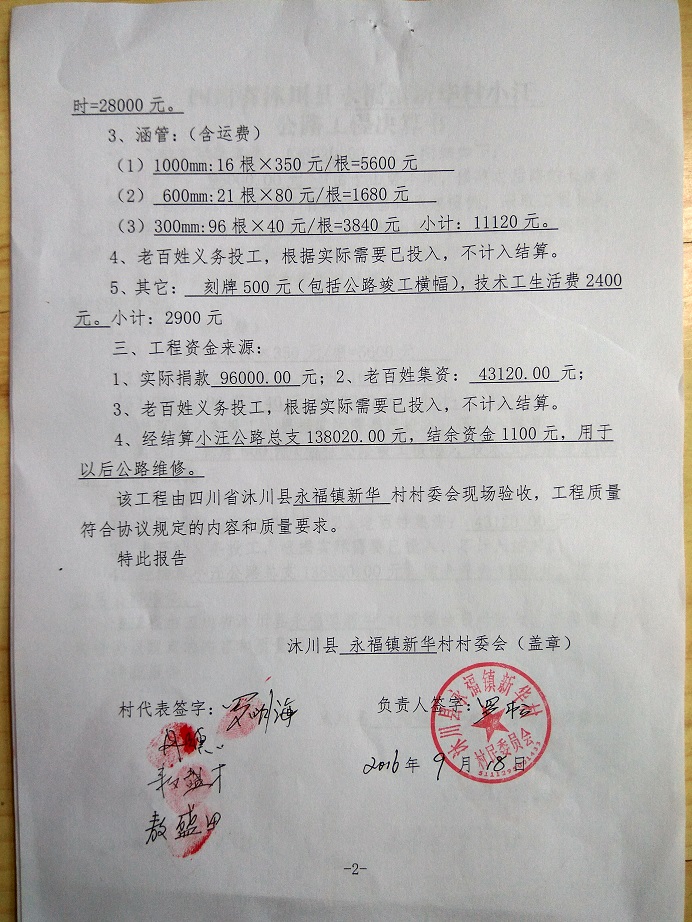 时=28000元。
3、涵管：（含运费）
（1）1000mm:16根×350元/根=5600元
（2） 600mm:21根×80元/根=1680元
（3）300mm:96根×40元/根=3840元 小计：11120元。
4、老百姓义务投工，根据实际需要已投入，不计入结算。
5、其它： 刻牌500元（包括公路竣工横幅），技术工生活费2400
元。小计：2900元
三、工程资金来源：
1、实际捐款 96000.00 元；2、老百姓集资： 43120.00 元；
3、老百姓义务投工，根据实际需要已投入，不计入结算。
4、经结算小汪公路总支138020.00元，结余资金1100元，用于
以后公路维修。
该工程由四川省沐川县永福镇新华 村村委会现场验收，工程质量
符合协议规定的内容和质量要求。
特此报告
沐川县 永福镇新华村村委会（盖章）
村代表签字：
负责人签字：
沐川县永福镇新华村
村民委员会
2016年 9月 18日
敖盛田
-2-